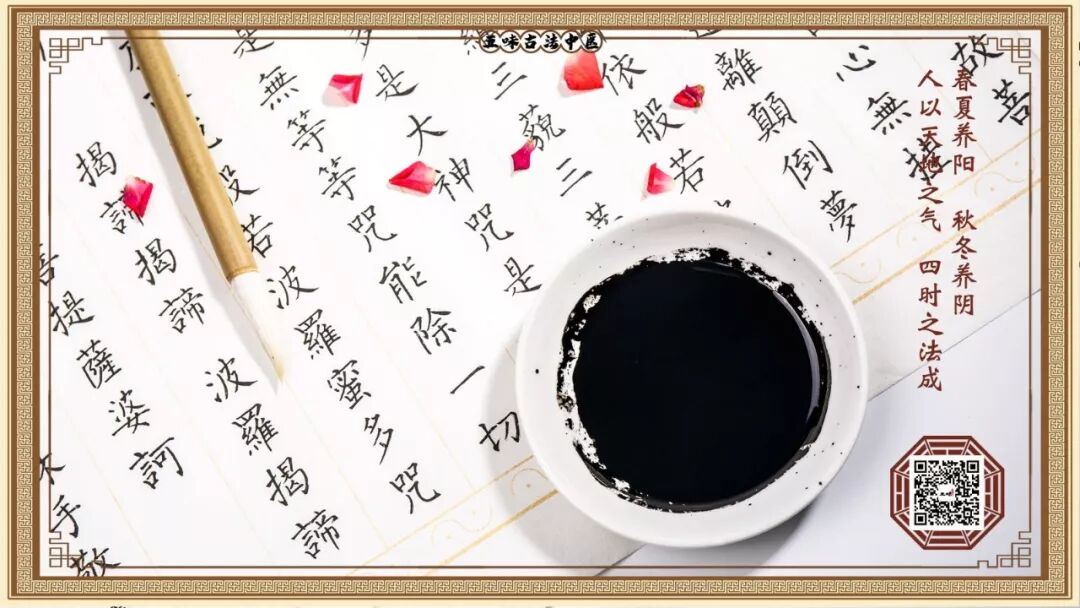 味古法中医
春夏养阳 秋冬养阴
人以天地之气 四时之法成
故菩
心無
離顛倒夢
依般若
三藐三菩
多是大神咒是
是無等等咒能除一切
般若波羅蜜多咒
揭諦揭諦 波羅揭諦
菩提薩婆訶
手敬